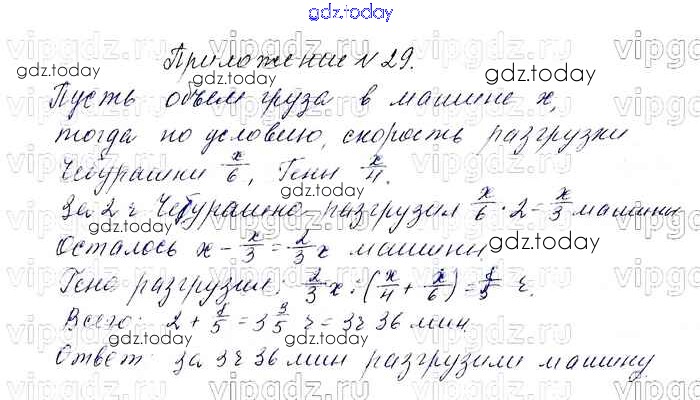 gdz.today
Приложение № 29.
Пусть объем груза в машине x,
тогда по условию, скорость разгрузки
Чебурашки x/6, Гены x/4.
За 2 ч Чебурашка разгрузил x/6 · 2 = x/3 машины
Осталось x - x/3 = 2/3 x машины.
Гена разгрузил: 2/3 x : (x/4 + x/6) = 8/5 ч.
Всего: 2 + 8/5 = 3 3/5 ч = 3ч 36 мин.
Ответ: за 3ч 36 мин разгрузили машину